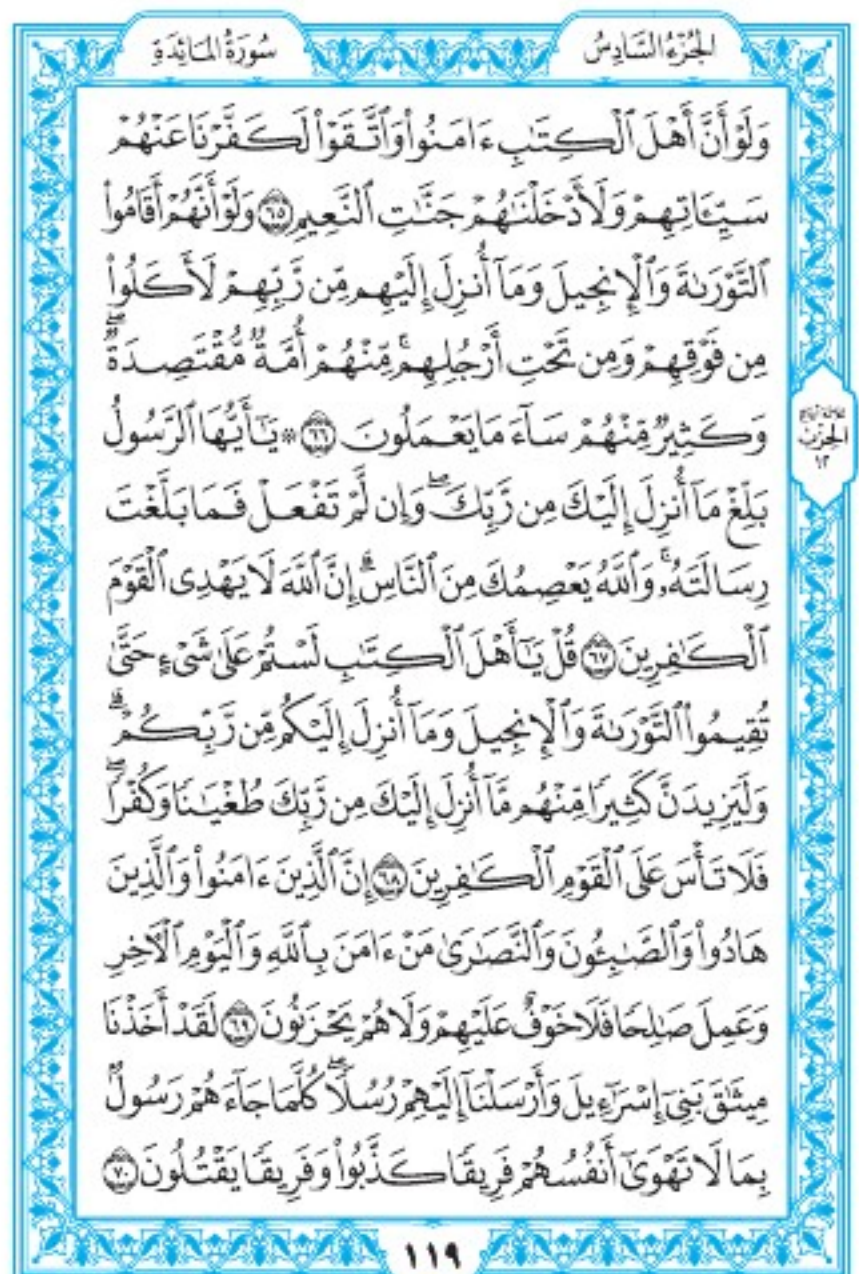 الجُزْءُ السَّادِسُ
سُورَةُ المَائِدَةِ
وَلَوْ أَنَّ أَهْلَ ٱلْكِتَٰبِ ءَامَنُوا۟ وَٱتَّقَوْا۟ لَكَفَّرْنَا عَنْهُمْ
سَيِّـَٔاتِهِمْ وَلَأَدْخَلْنَٰهُمْ جَنَّٰتِ ٱلنَّعِيمِ ٦٥ وَلَوْ أَنَّهُمْ أَقَامُوا۟
ٱلتَّوْرَىٰةَ وَٱلْإِنجِيلَ وَمَآ أُنزِلَ إِلَيْهِم مِّن رَّبِّهِمْ لَأَكَلُوا۟
مِن فَوْقِهِمْ وَمِن تَحْتِ أَرْجُلِهِم ۚ مِّنْهُمْ أُمَّةٌ مُّقْتَصِدَةٌ ۖ
وَكَثِيرٌ مِّنْهُمْ سَآءَ مَا يَعْمَلُونَ ٦٦ ۞ يَٰٓأَيُّهَا ٱلرَّسُولُ
بَلِّغْ مَآ أُنزِلَ إِلَيْكَ مِن رَّبِّكَ ۖ وَإِن لَّمْ تَفْعَلْ فَمَا بَلَّغْتَ
رِسَالَتَهُۥ ۚ وَٱللَّهُ يَعْصِمُكَ مِنَ ٱلنَّاسِ ۗ إِنَّ ٱللَّهَ لَا يَهْدِى ٱلْقَوْمَ
ٱلْكَٰفِرِينَ ٦٧ قُلْ يَٰٓأَهْلَ ٱلْكِتَٰبِ لَسْتُمْ عَلَىٰ شَىْءٍ حَتَّىٰ
تُقِيمُوا۟ ٱلتَّوْرَىٰةَ وَٱلْإِنجِيلَ وَمَآ أُنزِلَ إِلَيْكُم مِّن رَّبِّكُمْ ۗ
وَلَيَزِيدَنَّ كَثِيرًا مِّنْهُم مَّآ أُنزِلَ إِلَيْكَ مِن رَّبِّكَ طُغْيَٰنًا وَكُفْرًا ۖ
فَلَا تَأْسَ عَلَى ٱلْقَوْمِ ٱلْكَٰفِرِينَ ٦٨ إِنَّ ٱلَّذِينَ ءَامَنُوا۟ وَٱلَّذِينَ
هَادُوا۟ وَٱلصَّٰبِـُٔونَ وَٱلنَّصَٰرَىٰ مَنْ ءَامَنَ بِٱللَّهِ وَٱلْيَوْمِ ٱلْـَٔاخِرِ
وَعَمِلَ صَٰلِحًا فَلَا خَوْفٌ عَلَيْهِمْ وَلَا هُمْ يَحْزَنُونَ ٦٩ لَقَدْ أَخَذْنَا
مِيثَٰقَ بَنِىٓ إِسْرَٰٓءِيلَ وَأَرْسَلْنَآ إِلَيْهِمْ رُسُلًا ۖ كُلَّمَا جَآءَهُمْ رَسُولٌۢ
بِمَا لَا تَهْوَىٰٓ أَنفُسُهُمْ فَرِيقًا كَذَّبُوا۟ وَفَرِيقًا يَقْتُلُونَ ٧٠
ثلاثة أرباع
الحِزْبُ
١٢
١١٩